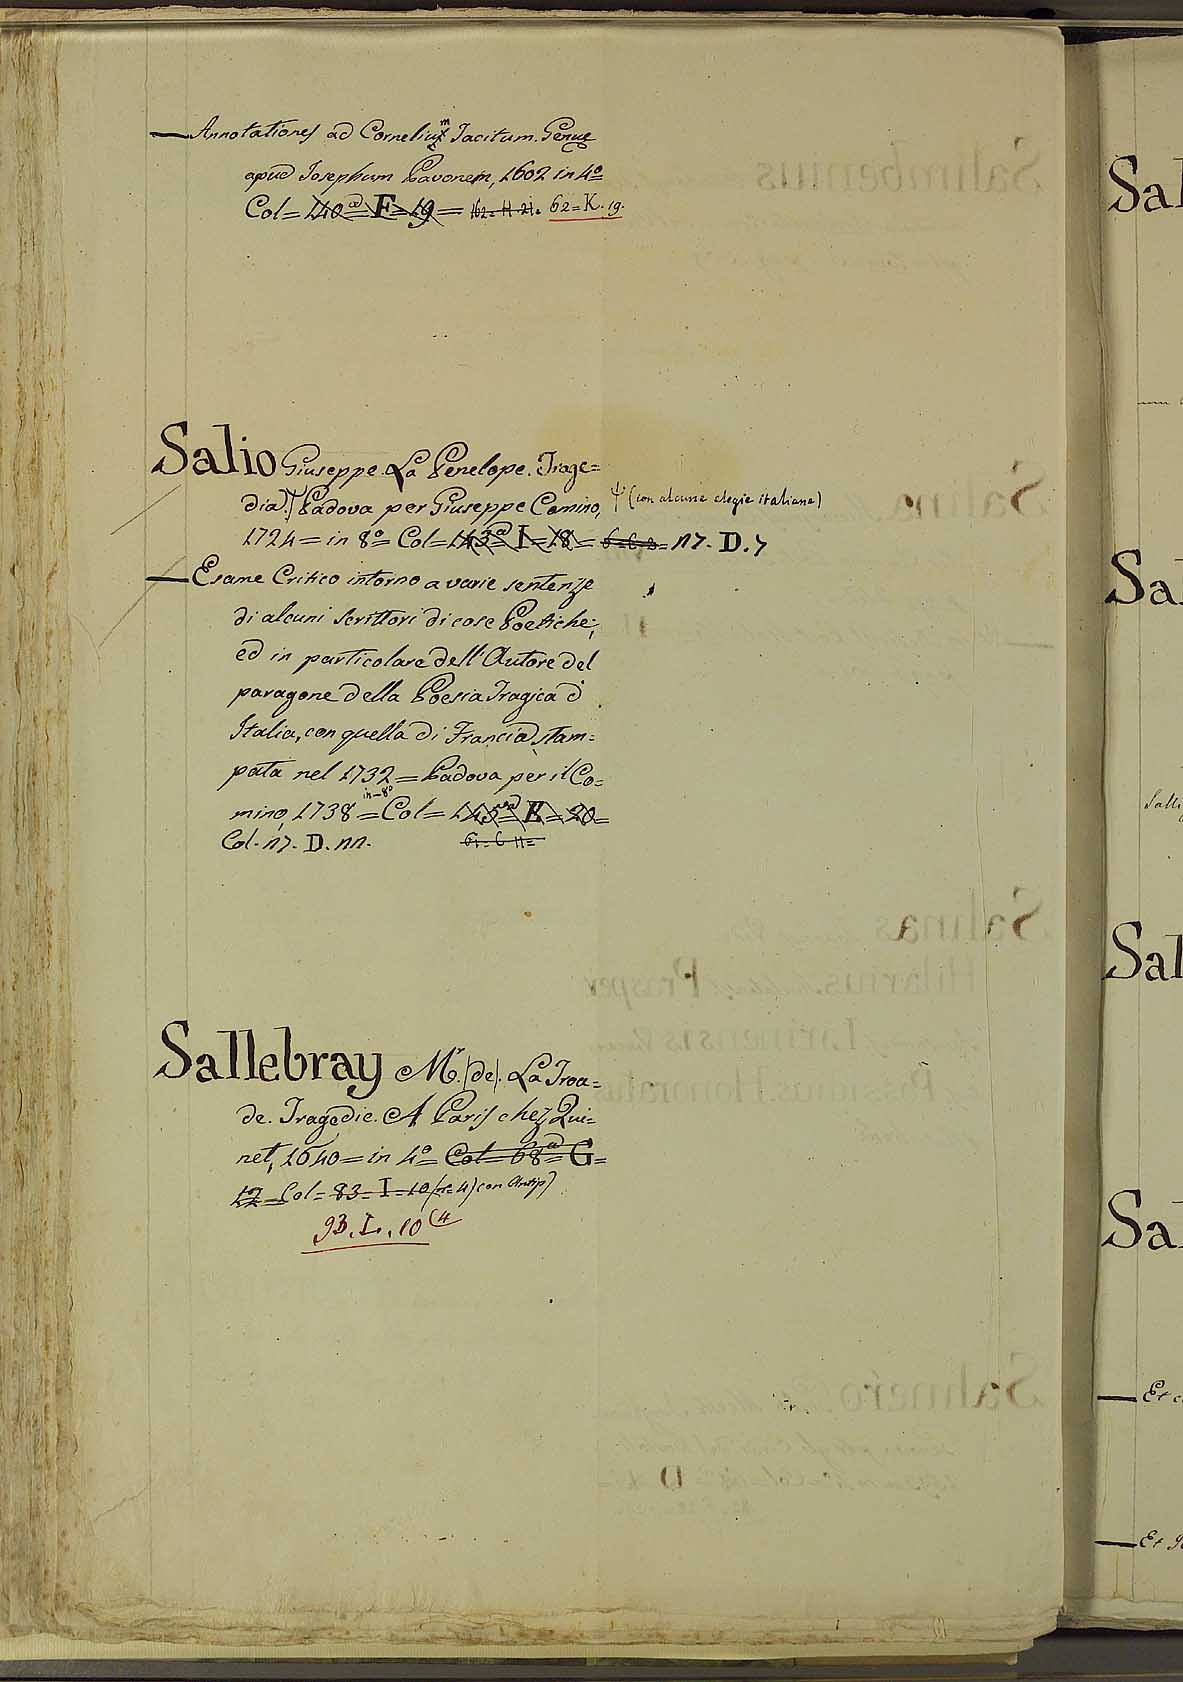 — Annotationes ad Cornelium Tacitum. Genue
apud Josephum Pavonem, 1602 in 4º
Col = 140ª = F = 19 = 162 = H. 21. 62 = K. 19.
Salio Giuseppe. La Penelope. Trage=
dia. Padova per Giuseppe Comino, (con alcune elegie italiane)
1724 = in 8º = Col = 143ª = I = 18 = n7. D. 7
— Esame Critico intorno a varie sentenze
di alcuni Scrittori di cose Poetiche;
ed in particolare dell'Autore del
paragone della Poesia Tragica d'
Italia, con quella di Francia stam=
pata nel 1732 = Padova per il Co=
mino, 1738 = in-8º Col = 145 = E = 20 =
Col. n7. D. nn.
Sallebray Mr. (de). La Troa=
de. Tragedie. A Paris chez Qui=
net, 1640 = in 4º = Col = 68ª = G =
12 = Col = 83 = I = 10 (n = 4) con Antip)
93. I. 10 (4
Sal
Sa
Sal
Sa
— Et
— Et